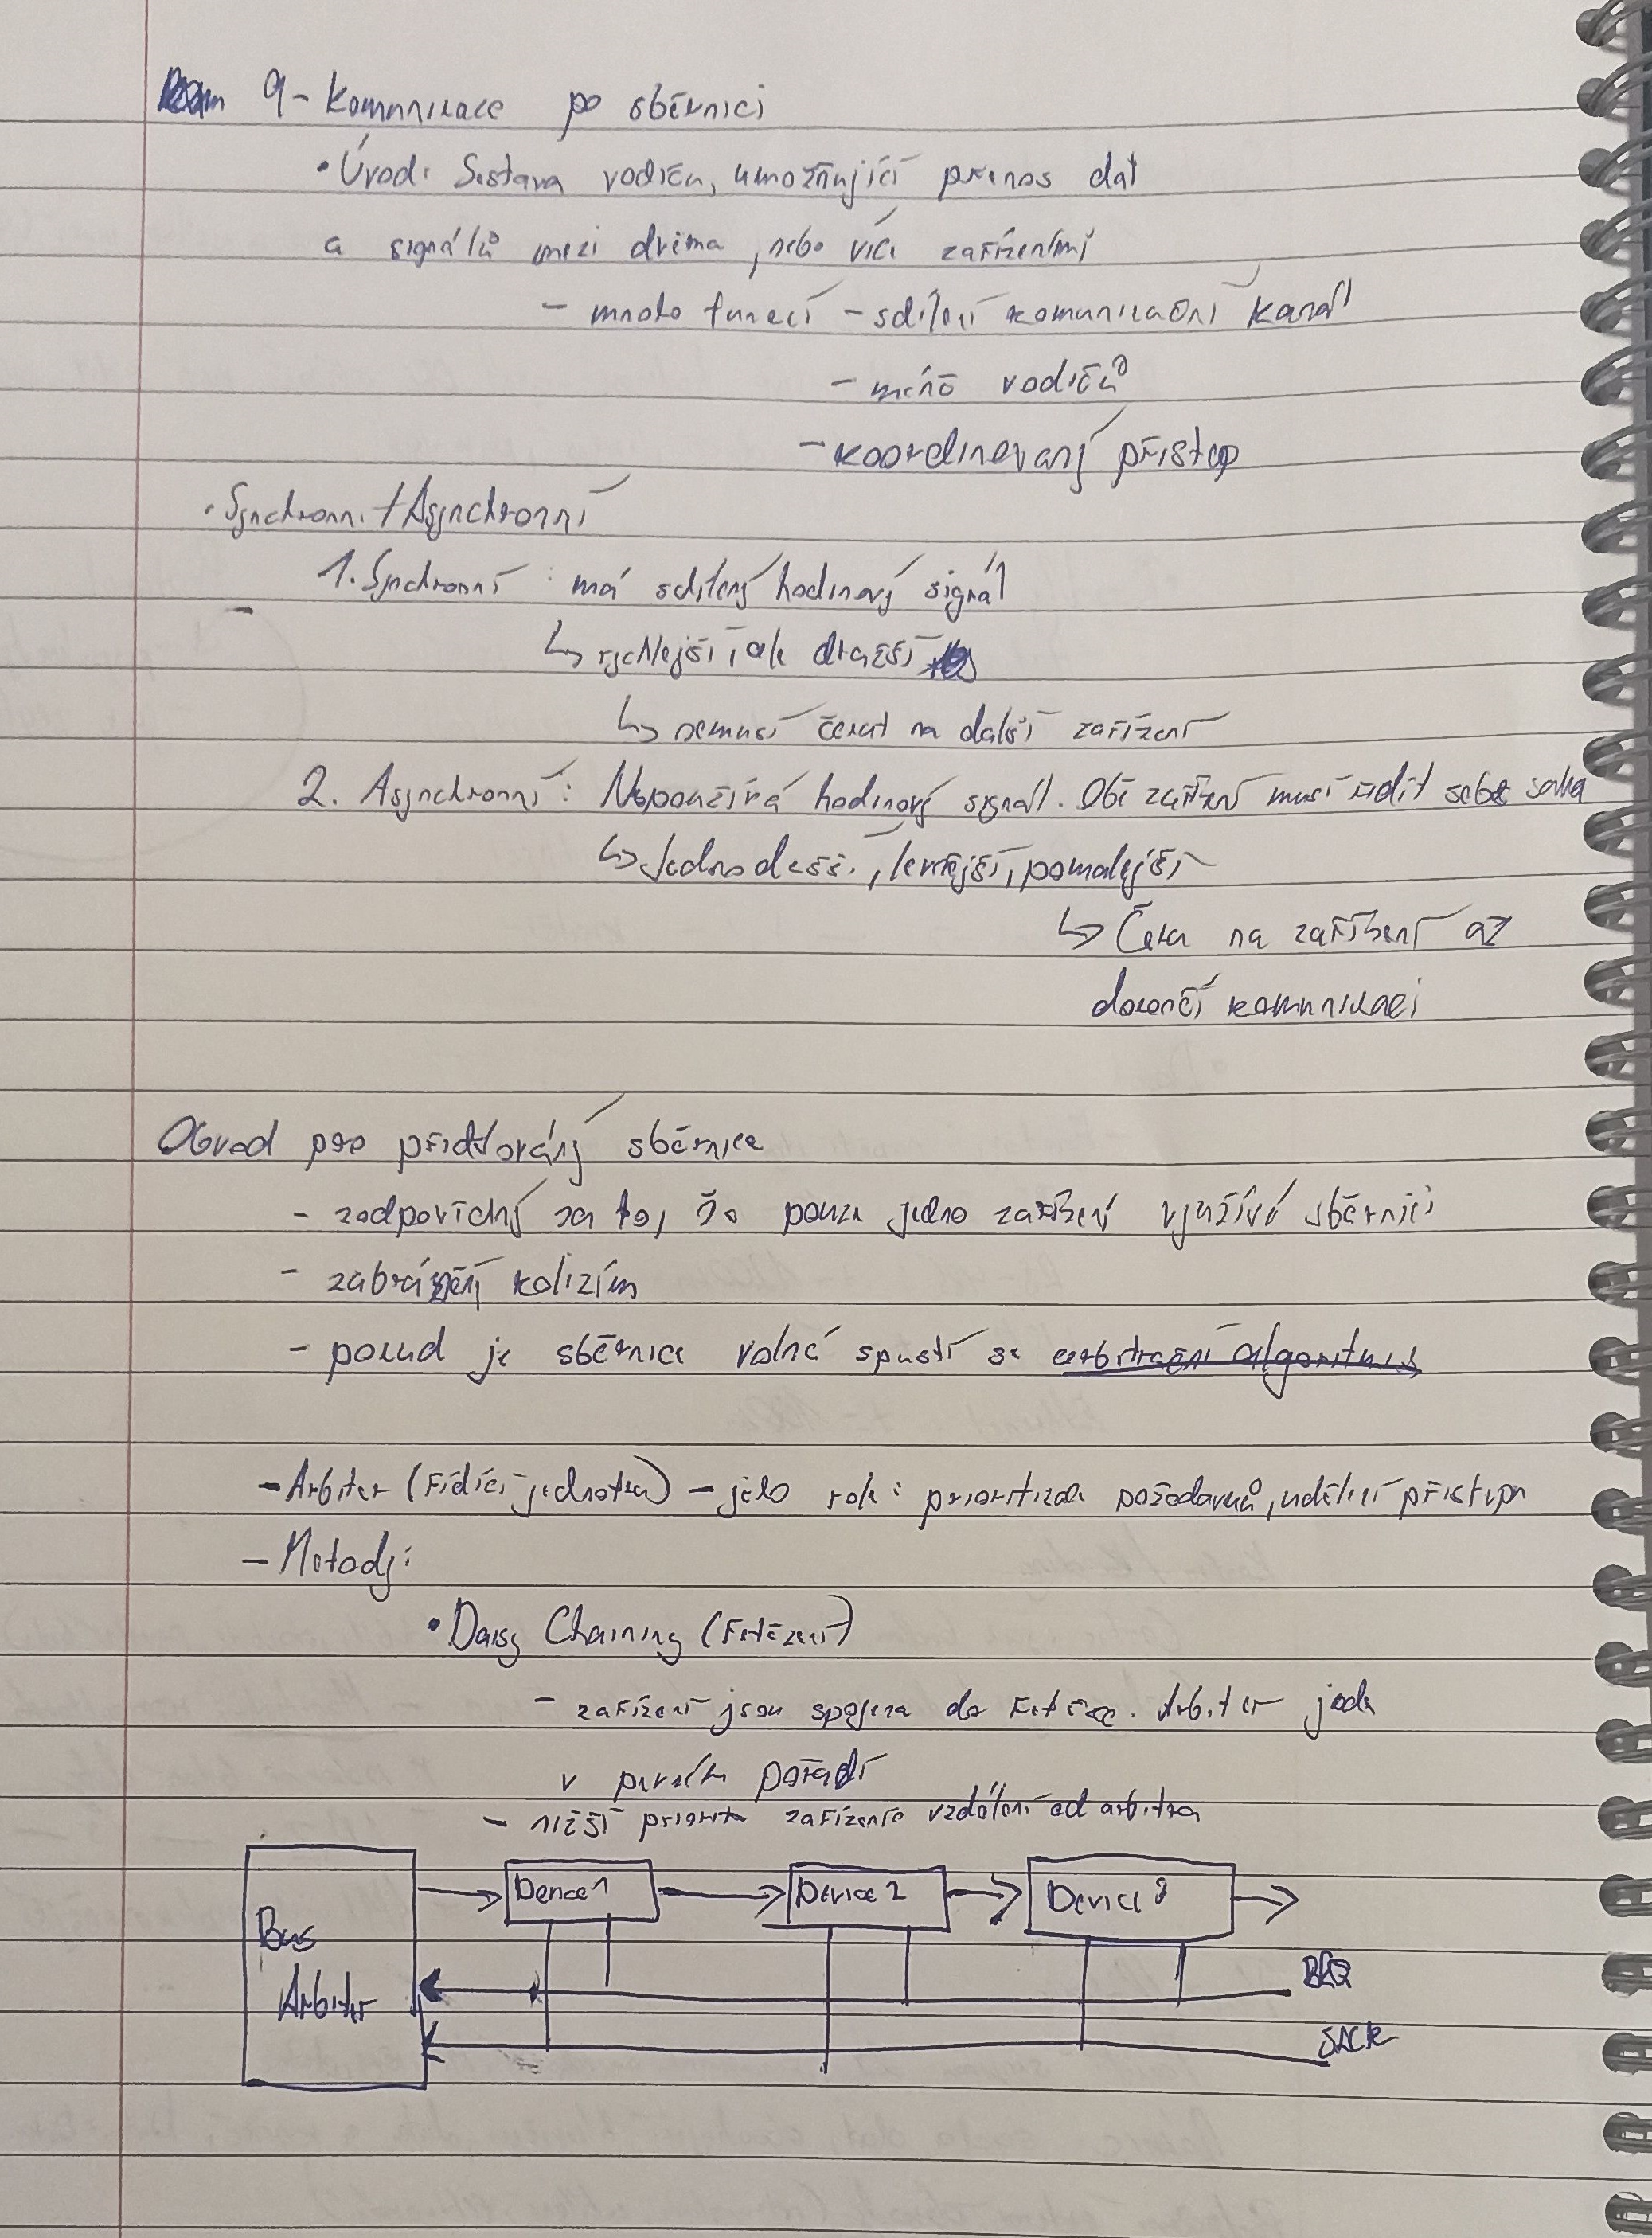 9 - Komunikace po sběrnici
• Úvod: Sestava vodičů, umožňující přenos dat
a signálů mezi dvěma, nebo více zařízeními
- mnoho funkcí - sdílení komunikační kanál
- méně vodičů
- koordinovaný přístup
• Synchronní / Asynchronní
1. Synchronní: má sdílený hodinový signál
↳ rychlejší, ale dražší
↳ nemusí čekat na další zařízení
2. Asynchronní: Nepoužívá hodinový signál. Obě zařízení musí řídit sebe sama
↳ Jednodušší, levnější, pomalejší
↳ Čeká na zařízení až
dokončí komunikaci
Obvod pro přidělování sběrnice
- zodpovědný za to, že pouze jedno zařízení využívá sběrnici
- zabránění kolizím
- pokud je sběrnice volná spustí se arbitrační algoritmus
- Arbiter (řídící jednotka) - jeho role: prioritizace požadavků, udělení přístupu
- Metody:
• Daisy Chaining (řetězení)
- zařízení jsou spojena do řetězce. Arbiter jede
v prvním pořadí
- nižší priorita zařízení vzdálení od arbitra
Device 1 Device 2 Device 3
Bus
Arbiter
BRQ
SACK